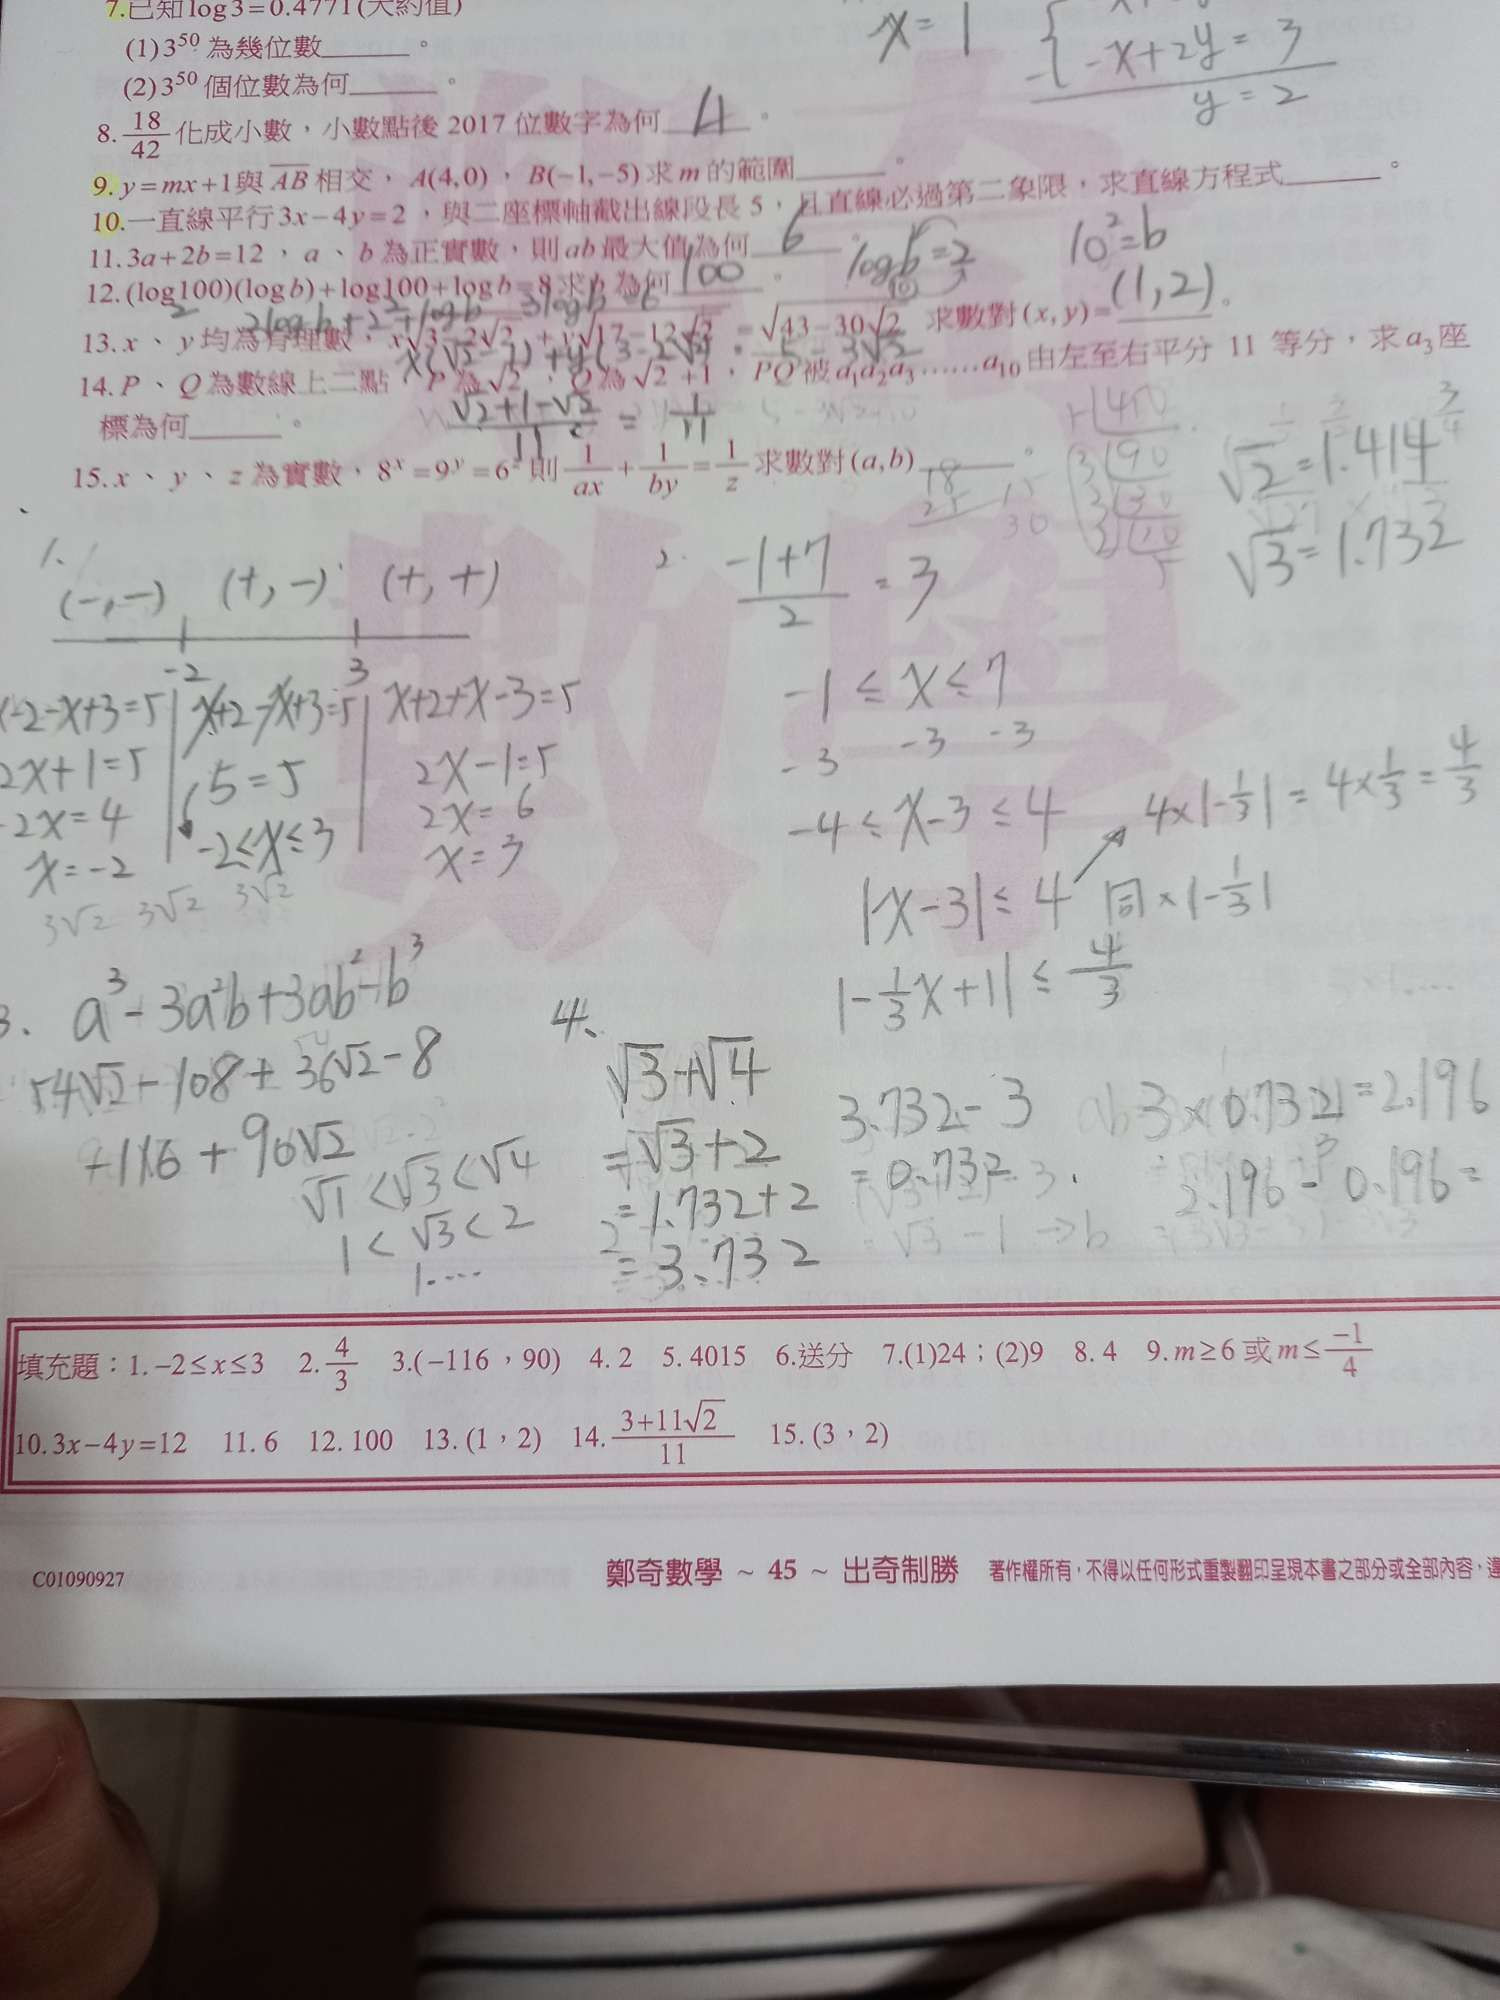 7.已知log3=0.4771(大約值)
(1)3⁵⁰為幾位數______。
(2)3⁵⁰個位數為何______。
x=1
-x+2y=3
y=2
8. 18/42 化成小數，小數點後 2017 位數字為何 4 。
9. y=mx+1與 AB 相交，A(4,0)，B(-1,-5)求 m 的範圍______。
10.一直線平行3x-4y=2，與二座標軸截出線段長 5，且直線必過第二象限，求直線方程式______。
11.3a+2b=12，a、b 為正實數，則ab 最大值為何 6 。
log₁₀b=2
10²=b
12.(log100)(logb)+log100+logb=8求b為何 100 。
2logb+2+logb 3logb=6
13.x、y 均為有理數，x√3-2√2+y√17-12√2=√43-30√2 求數對(x,y)= (1,2) 。
x(√2-1)+y(3-2√2)=5-3√2
14.P、Q 為數線上二點，P 為√2，Q 為√2+1，PQ 被 a₁a₂a₃……a₁₀ 由左至右平分 11 等分，求 a₃ 座
標為何______。
√2+1-√2/11 = 1/11
15.x、y、z 為實數，8ˣ=9ʸ=6ᶻ則 1/ax + 1/by = 1/z 求數對(a,b)______。
√2=1.414
√3=1.732
1.
(-,-) (+,-) (+,+)
-2 3
-x-2-x+3=5 x+2-x+3=5 x+2+x-3=5
-2x+1=5 5=5 2x-1=5
-2x=4 -2≤x≤3 2x=6
x=-2 x=3
3√2 3√2 3√2
2. -1+7/2 = 3
-1≤x≤7
-3 -3 -3
-4≤x-3≤4
4×|-1/3|=4×1/3=4/3
|x-3|≤4 同×|-1/3|
|-1/3x+1|≤4/3
3. a³-3a²b+3ab²-b³
54√2-108+36√2-8
-116+90√2
√1<√3<√4
1<√3<2
1....
4.
√3+√4
=√3+2
=1.732+2
=3.732
3.732-3
=0.732
3×0.732=2.196
2.196-0.196=
填充題：1.-2≤x≤3 2.4/3 3.(-116，90) 4.2 5.4015 6.送分 7.(1)24；(2)9 8.4 9.m≥6 或 m≤-1/4
10.3x-4y=12 11.6 12.100 13.(1，2) 14.3+11√2/11 15.(3，2)
C01090927
鄭奇數學 ~ 45 ~ 出奇制勝
著作權所有，不得以任何形式重製翻印呈現本書之部分或全部內容，違